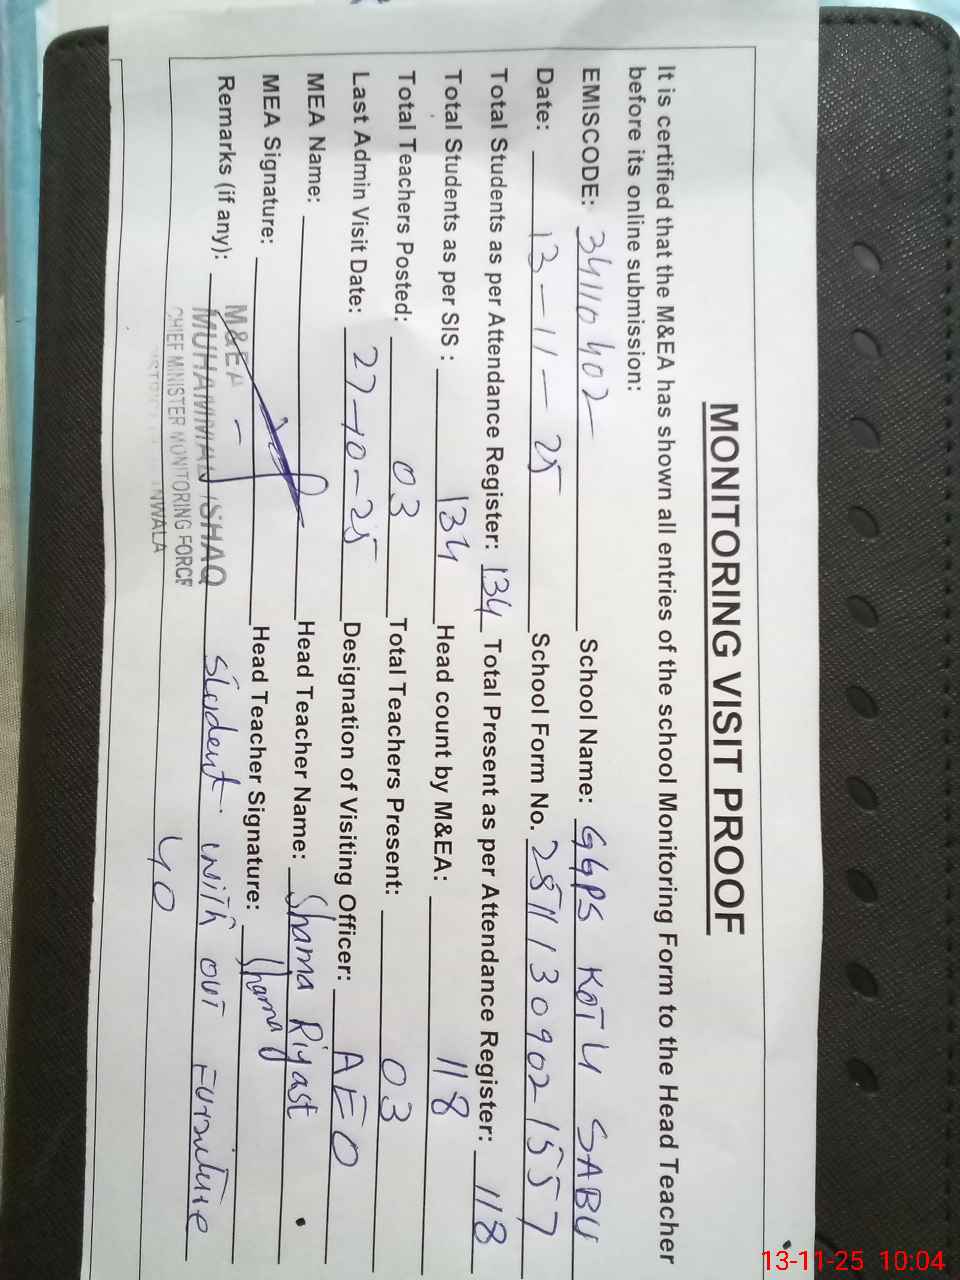 MONITORING VISIT PROOF
It is certified that the M&EA has shown all entries of the school Monitoring Form to the Head Teacher
before its online submission:
EMISCODE: 34110402 School Name: GGPS KOT U SABU
Date: 13-11-25 School Form No. 28111309021557
Total Students as per Attendance Register: 134 Total Present as per Attendance Register: 118
Total Students as per SIS : 134 Head count by M&EA: 118
Total Teachers Posted: 03 Total Teachers Present: 03
Last Admin Visit Date: 27-10-25 Designation of Visiting Officer: AEO
MEA Name: Head Teacher Name: Shama Riyast
MEA Signature: Head Teacher Signature: Shama
Remarks (if any): Student with out Furniture
40
M&EA
MUHAMMAD ISHAQ
CHIEF MINISTER MONITORING FORCE
13-11-25 10:04